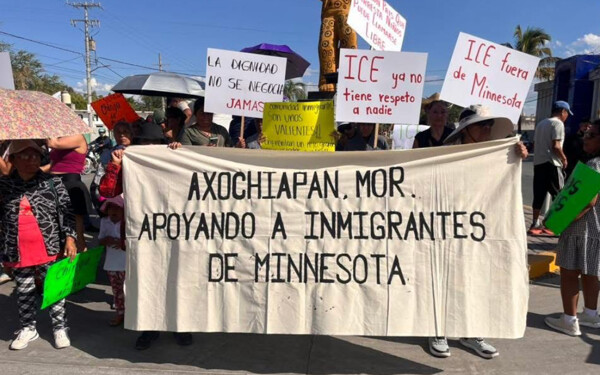 LA DIGNIDAD
NO SE NEGOCIA
JAMAS
LLAMARSE
LIBRE
ICE ya no
tiene respeto
a nadie
ICE fuera
de Minnesota
SOMOS UNOS
VALIENTES!
AXOCHIAPAN, MOR.
APOYANDO A INMIGRANTES
DE MINNESOTA